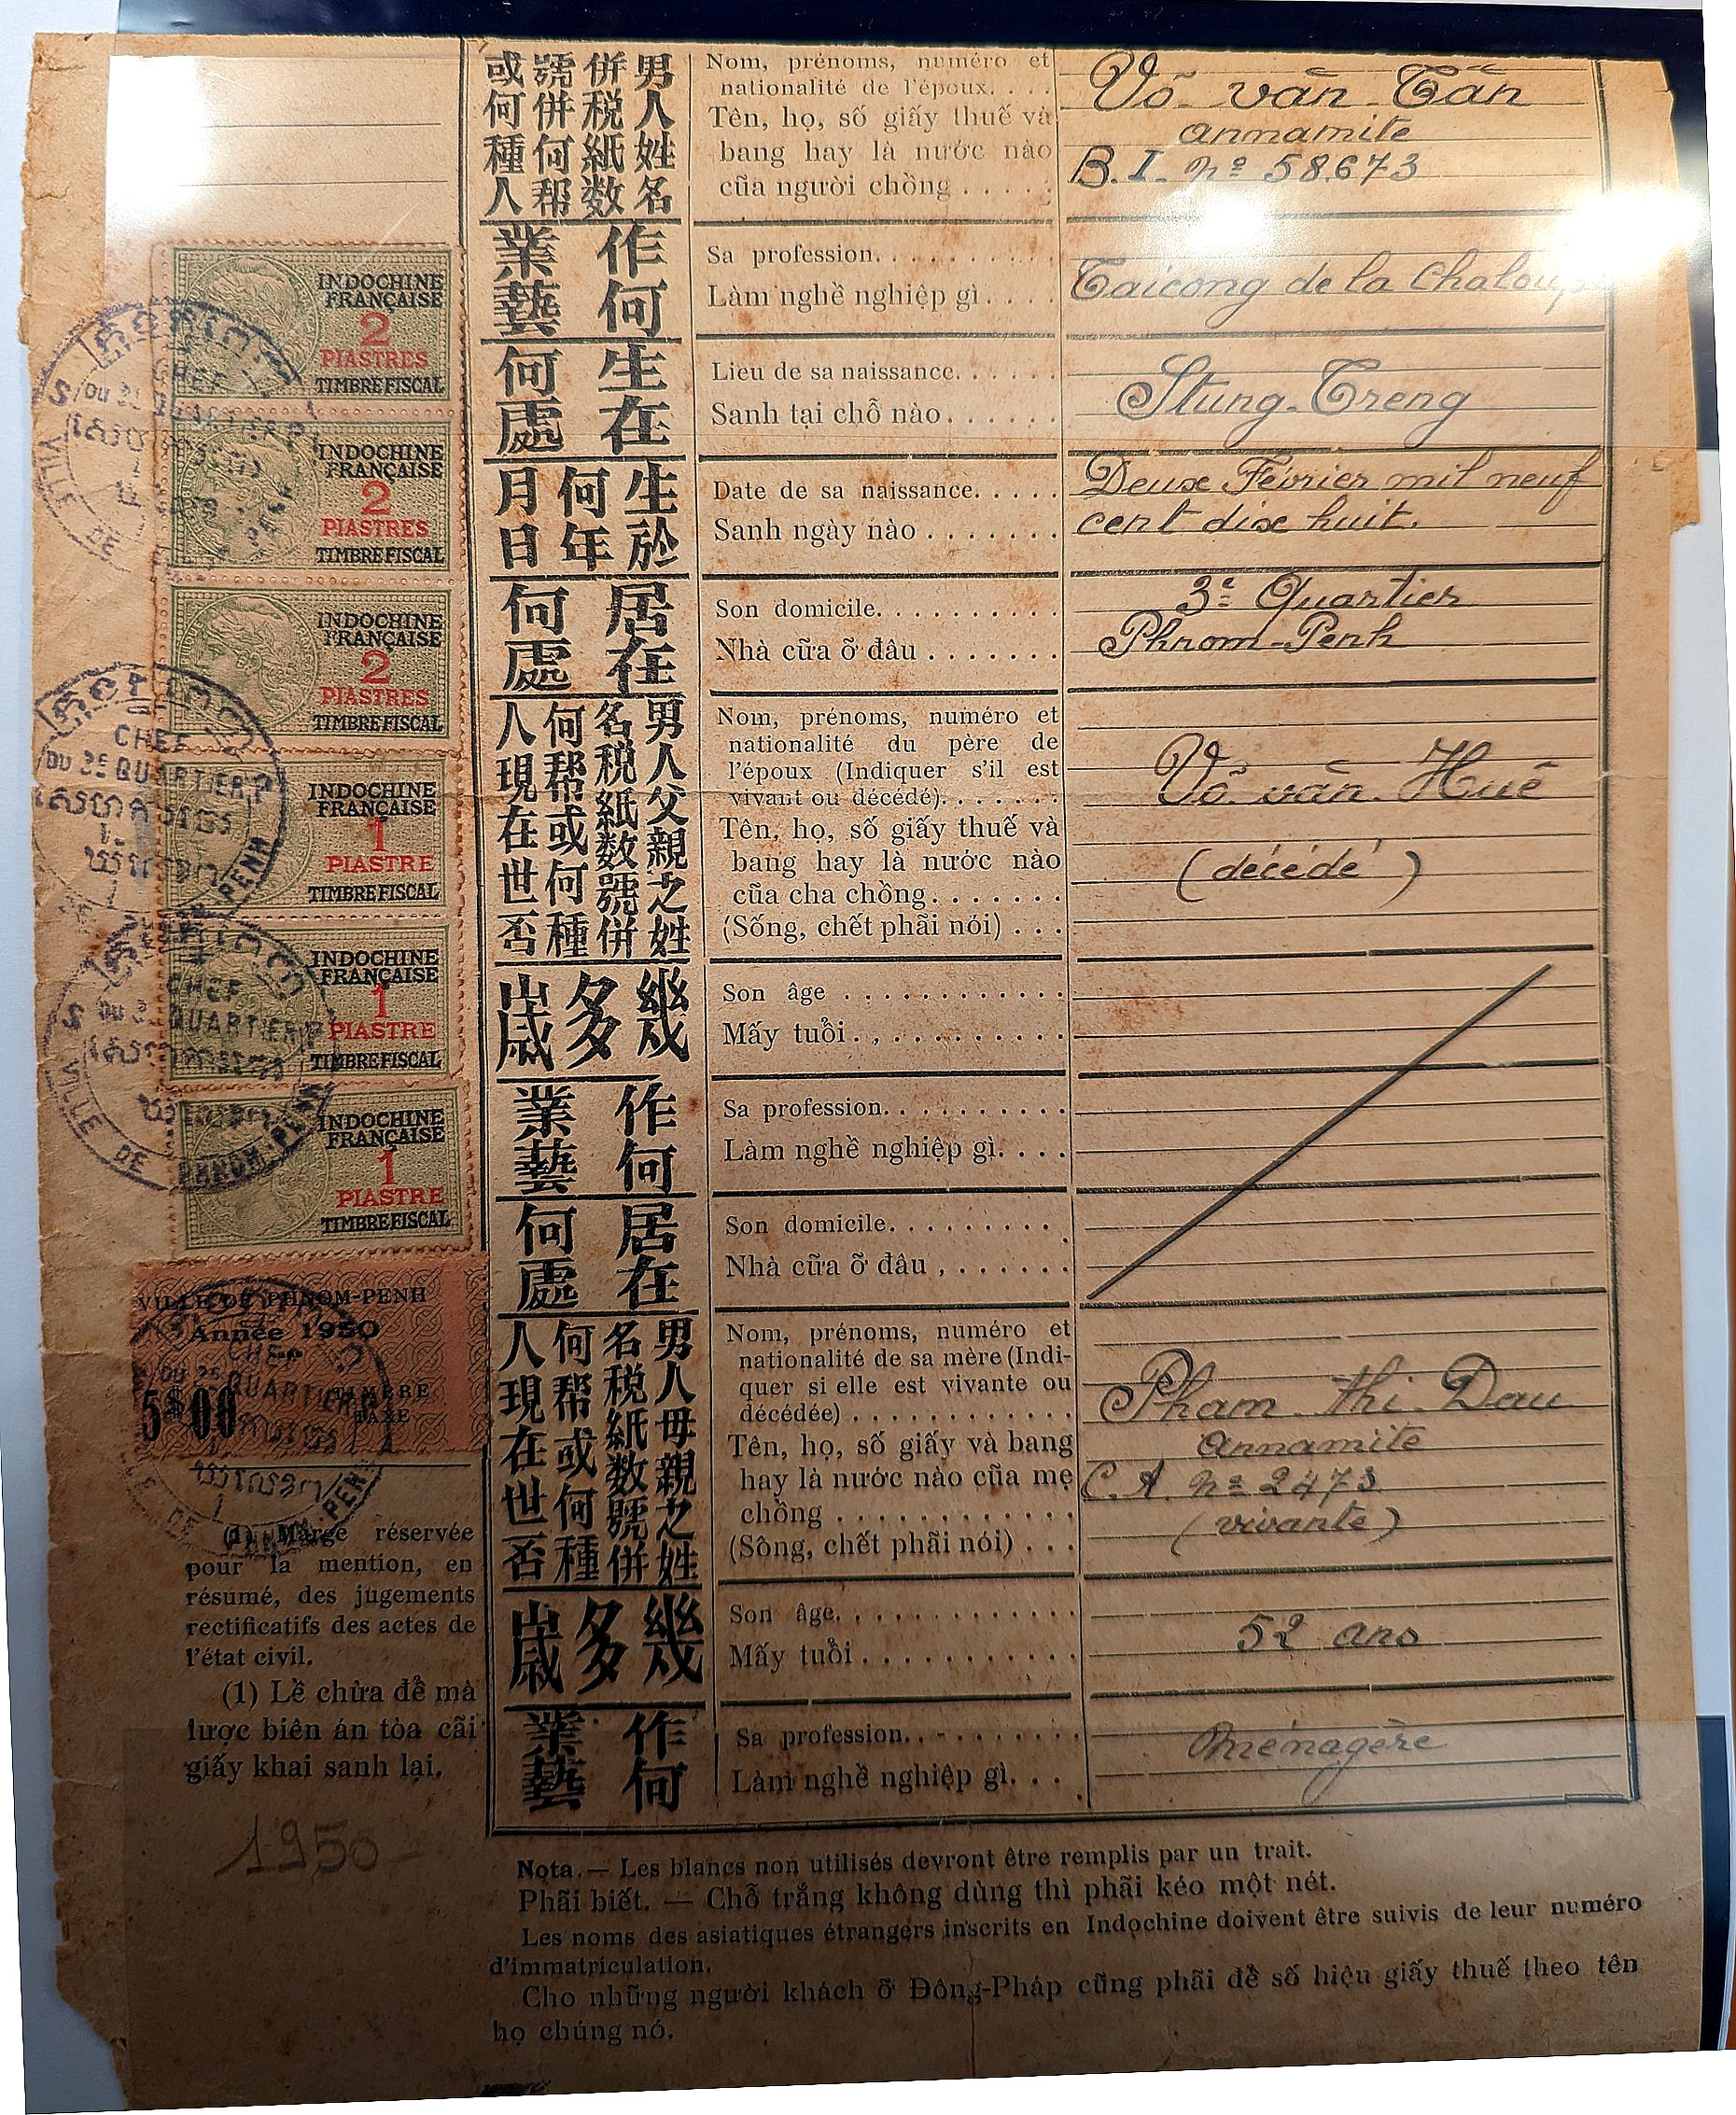 男人姓名
併税紙数
號併何帮
或何種人
Nom, prénoms, numéro et
nationalité de l'époux. . . .
Tên, họ, số giấy thuế và
bang hay là nước nào
cũa người chồng . . . . .
Võ - văn - Tấn
annamite
B. I. nº 58.673
作何
業藝
Sa profession. . . . . . . . . .
Làm nghề nghiệp gì. . . .
Taicong de la Chaloupe
生在
何處
Lieu de sa naissance. . . . .
Sanh tại chỗ nào . . . . . .
Stung-Treng
生於
何年
月日
Date de sa naissance. . . . .
Sanh ngày nào . . . . . . .
Deux Février mil neuf
cent dix huit.
居在
何處
Son domicile. . . . . . . . . .
Nhà cữa ỡ đâu . . . . . . .
3e Quartier
Phnom-Penh
男人父親之姓
名税紙数號併
何帮或何種
人現在世否
Nom, prénoms, numéro et
nationalité du père de
l'époux (Indiquer s'il est
vivant ou décédé). . . . . . .
Tên, họ, số giấy thuế và
bang hay là nước nào
cũa cha chồng. . . . . . .
(Sống, chết phãi nói) . . .
Võ - văn - Huê
(décédé)
幾多歲
Son âge . . . . . . . . . . . .
Mấy tuổi. . . . . . . . . . .
作何
業藝
Sa profession. . . . . . . . . .
Làm nghề nghiệp gì. . . .
居在
何處
Son domicile. . . . . . . . .
Nhà cữa ỡ đâu . . . . . . .
男人母親之姓
名税紙数號併
何帮或何種
人現在世否
Nom, prénoms, numéro et
nationalité de sa mère (Indi-
quer si elle est vivante ou
décédée) . . . . . . . . . . . .
Tên, họ, số giấy và bang
hay là nước nào cũa mẹ
chồng . . . . . . . . . . . .
(Sông, chết phãi nói) . . .
Pham - thi - Dau
Annamite
C. A. nº 2473
(vivante)
幾多歲
Son âge. . . . . . . . . . . . .
Mấy tuổi . . . . . . . . . . .
52 ans
作何
業藝
Sa profession. . . . . . . . .
Làm nghề nghiệp gì. . .
Ménagère
INDOCHINE
FRANÇAISE
2
PIASTRES
TIMBRE FISCAL
INDOCHINE
FRANÇAISE
2
PIASTRES
TIMBRE FISCAL
INDOCHINE
FRANÇAISE
2
PIASTRES
TIMBRE FISCAL
INDOCHINE
FRANÇAISE
1
PIASTRE
TIMBRE FISCAL
INDOCHINE
FRANÇAISE
1
PIASTRE
TIMBRE FISCAL
INDOCHINE
FRANÇAISE
1
PIASTRE
TIMBRE FISCAL
CHEF
QUARTIER
VILLE DE PHNOM-PENH
VILLE DE PHNOM-PENH
Année 1950
5$00
TIMBRE
TAXE
(1) Marge réservée
pour la mention, en
résumé, des jugements
rectificatifs des actes de
l'état civil.
(1) Lề chừa để mà
lược biên án tòa cãi
giấy khai sanh lại.
1950
Nota. — Les blancs non utilisés devront être remplis par un trait.
Phãi biết. — Chỗ trắng không dùng thì phãi kéo một nét.
Les noms des asiatiques étrangers inscrits en Indochine doivent être suivis de leur numéro
d'immatriculation.
Cho những người khách ỡ Đông-Pháp cũng phãi đề số hiệu giấy thuế theo tên
họ chúng nó.